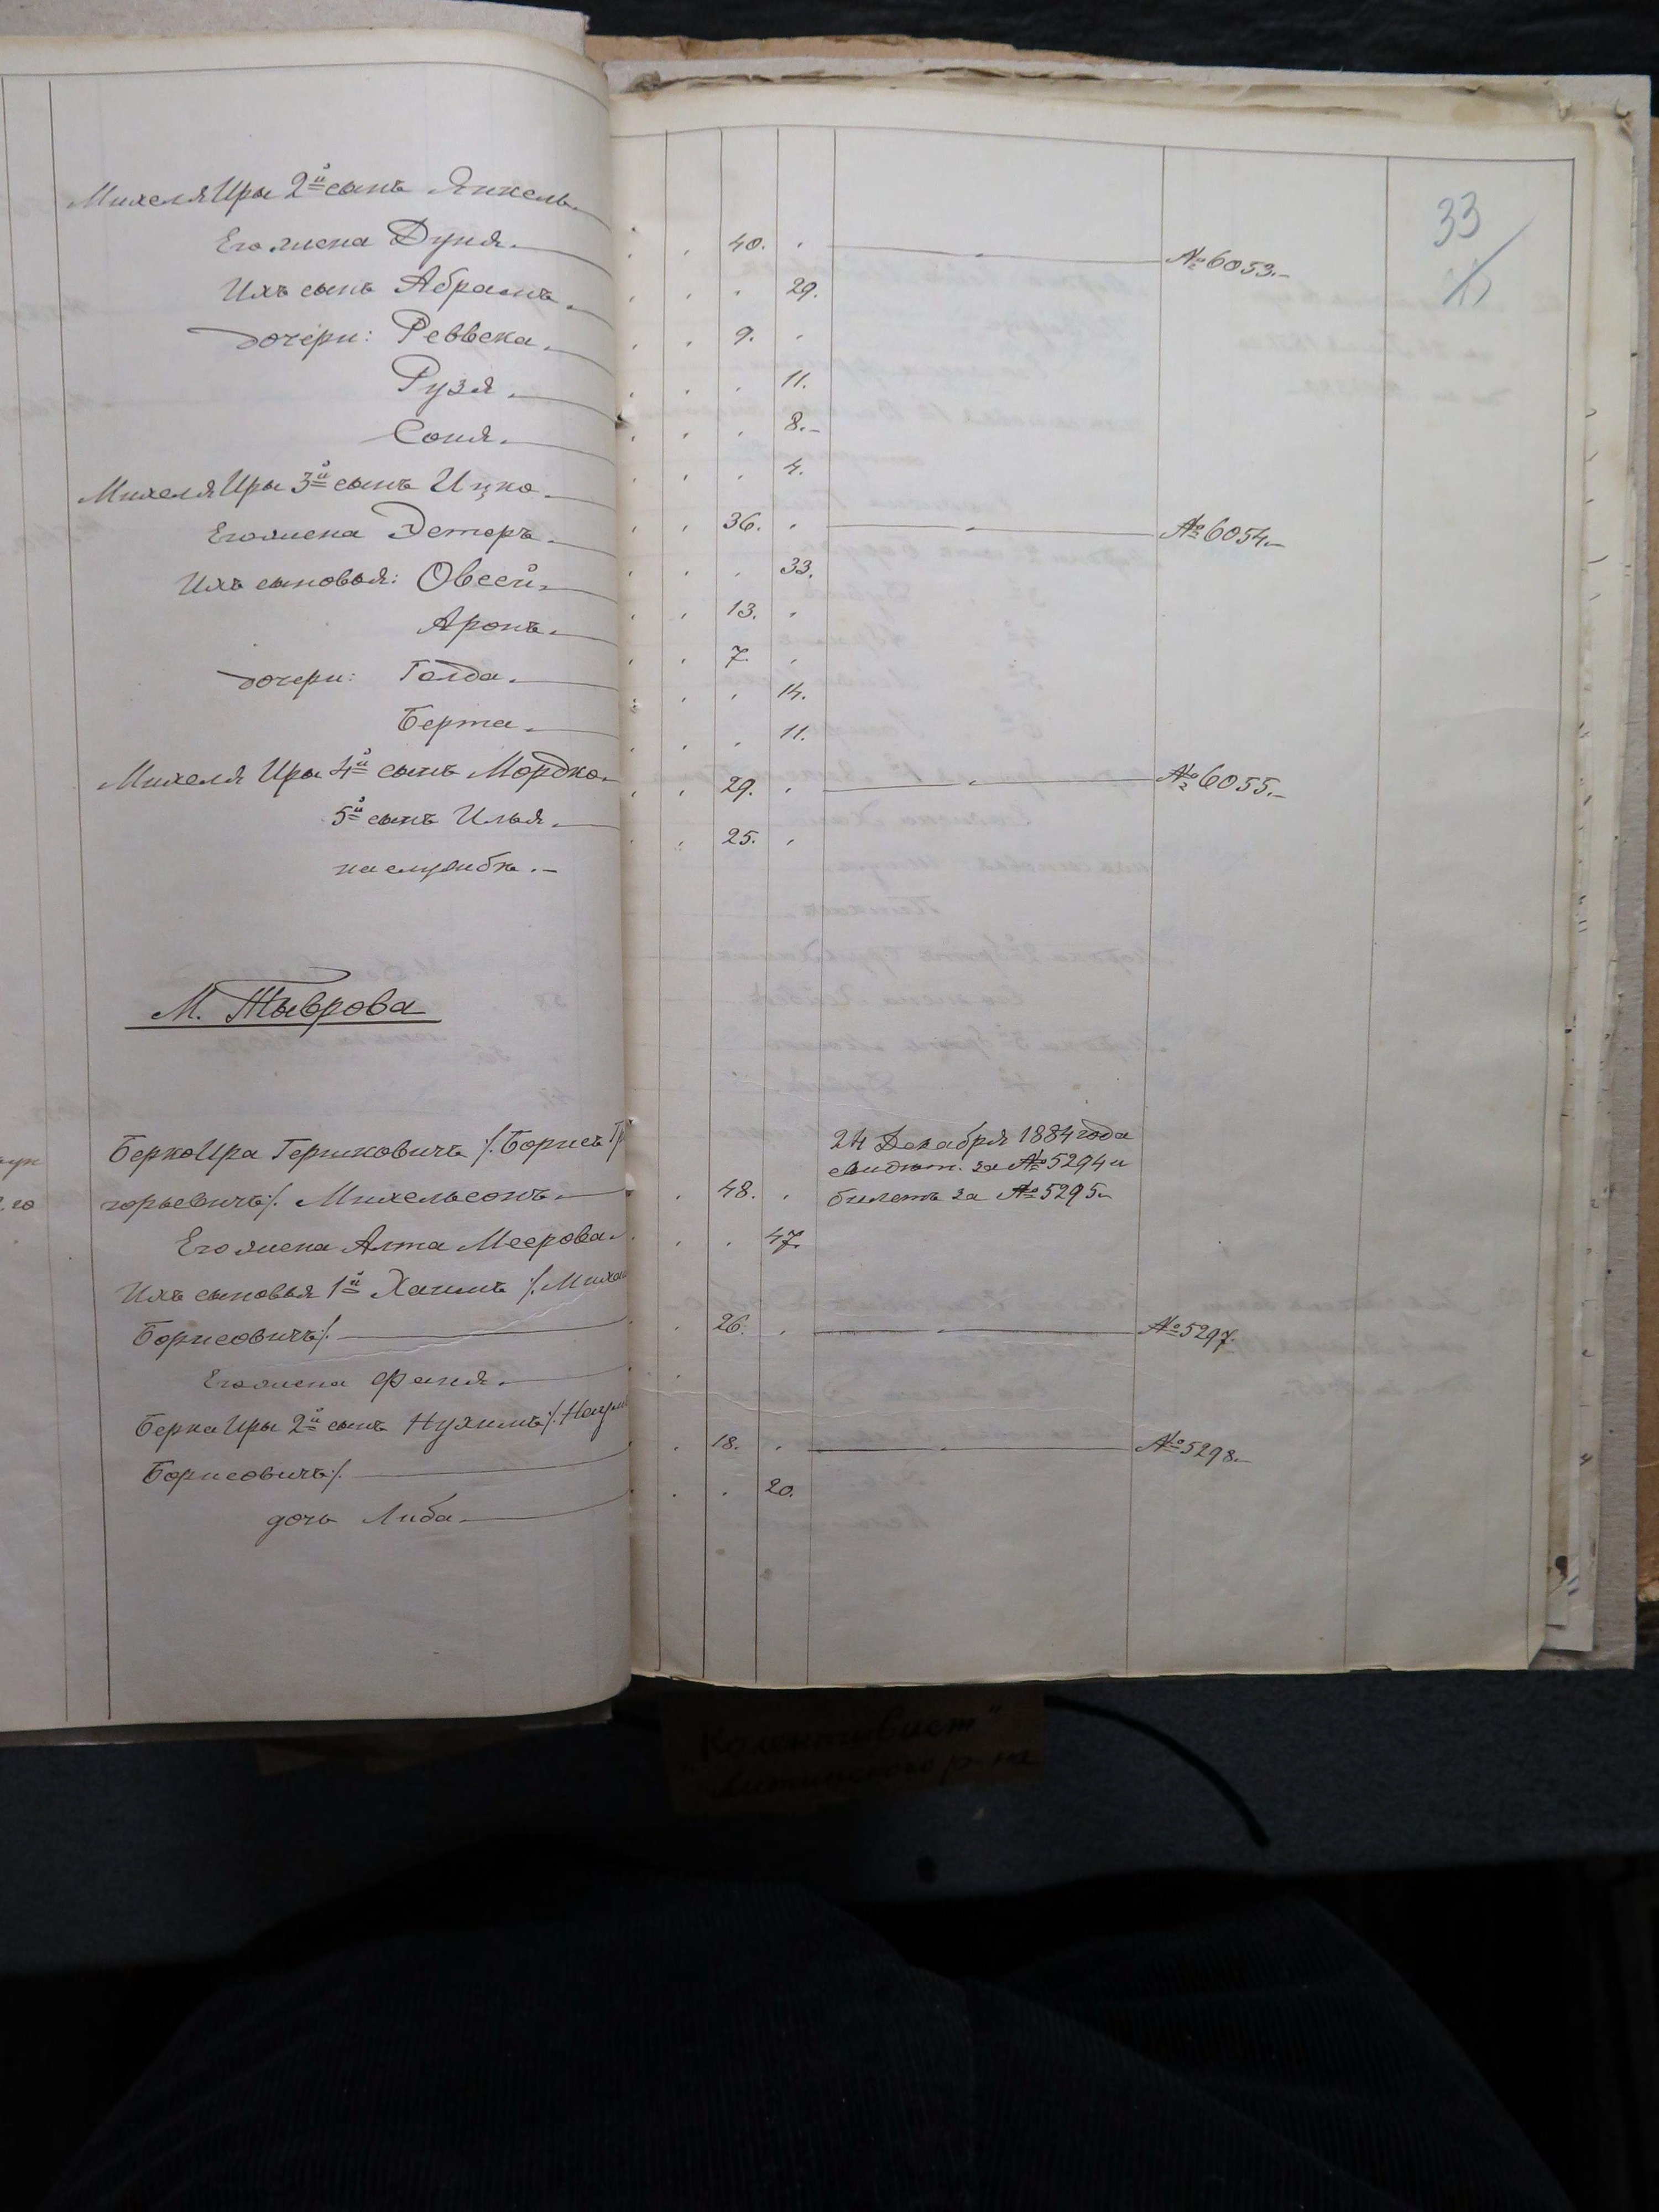 33
Михеля Иры 2й сынъ Янкель. 40. № 6053.
Его жена Дуня. 29.
Ихъ сынъ Абрамъ. 9.
дочери: Реввека. 11.
Рузя. 8.
Соня. 4.
Михеля Иры 3й сынъ Ицко. 36. № 6054.
Его жена Эстеръ. 33.
Ихъ сыновья: Овсей. 13.
Аронъ. 7.
дочери: Голда. 14.
Берта. 11.
Михеля Иры 4й сынъ Мордко. 29. № 6055.
5й сынъ Илья. 25.
на службѣ.
М. Тыврова
Берко Ира Гершковичъ /. Борисъ Гр 24 Декабря 1884 года
свидѣт. за № 5294 и
горьевичъ /. Михельсонъ 48. билетъ за № 5295
Его жена Алта Меерова. 47.
Ихъ сыновья 1й Хаимъ /. Миха
Борисовичъ /. 26. № 5297.
Его жена Фаня.
Берка Иры 2й сынъ Нухимъ /. Наум
Борисовичъ /. 18. № 5298.
дочь Либа 20.
"Колективист"
Литинского р-на